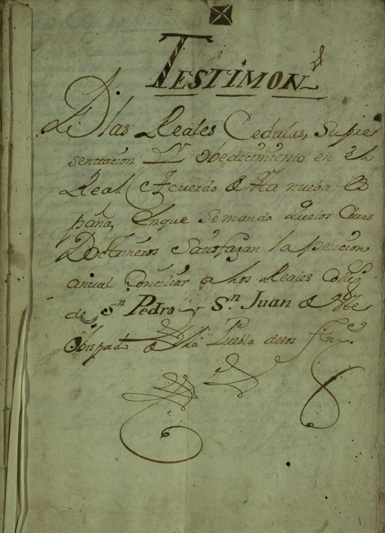 TESTIMONo
D las Reales Cedulas, Supre
sentacion Y obedecimiento en el
Real Acuerdo de la nueba Es
paña, Enque Semanda quelos Curas
Doctrineros Satisfagan la pencion
anual Conciliar a los Reales Coleg
de Sn Pedro y Sn Juan de
obispado de la Puebla